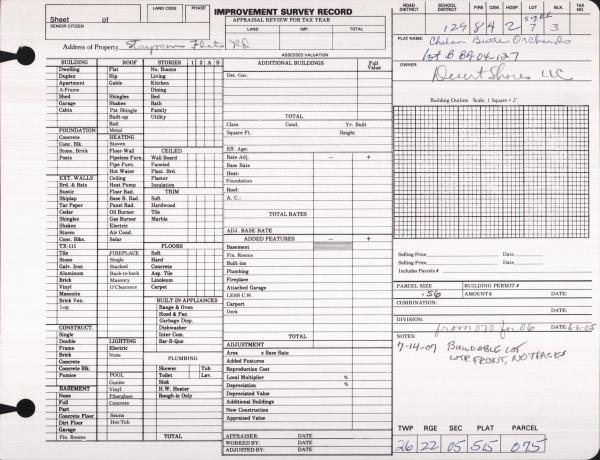 Sheet of
SENIOR CITIZEN
LAND CODE
PHASE
IMPROVEMENT SURVEY RECORD
APPRAISAL REVIEW FOR TAX YEAR
LAND IMP. TOTAL
Address of Property Stayman Flats RD
ASSESSED VALUATION
ROAD DISTRICT SCHOOL DISTRICT FIRE CEM. HOSP. LOT BLK. TAX NO.
129 8 4 2 7 3
PLAT NAME: Chelan Butte Orchards
lot B BA 04-127
OWNER: Desert Shores LLC
BUILDING ROOF STORIES 1 2 A B
Dwelling Flat No. Rooms
Duplex Hip Living
Apartment Gable Kitchen
A-Frame Dining
Shed Shingles Bed
Garage Shakes Bath
Cabin Pat Shingle Family
Built-up Utility
Roll
FOUNDATION Metal
Concrete HEATING
Conc. Blk. Stoves CEILED
Stone, Brick Floor-Wall Wall Board
Posts Pipeless Furn. Paneled
Pipe Furn. Plast. Brd.
Hot Water Plaster
EXT. WALLS Ceiling Insulation
Brd. & Bats Heat Pump TRIM
Rustic Floor Rad. Soft
Shiplap Base B. Rad. Hardwood
Tar Paper Panel Rad. Tile
Cedar Oil Burner Marble
Shingles Gas Burner
Shakes Electric
Stucco Air Cond.
Conc. Blks. Solar FLOORS
TX-111 Soft
Tile FIREPLACE Hard
Stone Single Concrete
Galv. Iron Stacked Asp. Tile
Aluminum Back-to-back Linoleum
Brick Masonry Carpet
Vinyl O'Clearance
Masonite
Brick Ven. BUILT-IN APPLIANCES
Log Range & Oven
Hood & Fan
Garbage Disp.
CONSTRUCT. Dishwasher
Single Inter Com.
Double LIGHTING Bar-B-Que
Frame Electric
Brick None PLUMBING
Concrete
Concrete Blk. Shower Tub
Pumice POOL Toilet Lav.
Gunite Sink
BASEMENT Vinyl H.W. Heater
None Fiberglass Rough-in Only
Full Concrete
Part
Concrete Floor Sauna
Dirt Floor Hot-Tub
Garage
Fin. Rooms TOTAL
ADDITIONAL BUILDINGS Full Value
Det. Gar.
TOTAL
Class Cond. Yr. Built
Square Ft. Height
Eff. Age:
Rate Adj. − +
Base Rate
Heat:
Foundation
Roof:
A. C.:
TOTAL RATES
ADJ. BASE RATE
ADDED FEATURES − +
Basement
Fin. Rooms
Built-ins
Plumbing
Fireplace
Attached Garage
LESS C.W.
Carport
Deck
TOTAL
ADJUSTMENT
Area x Base Rate
Added Features
Reproduction Cost
Local Multiplier %
Depreciation %
Depreciated Value
Additional Buildings
New Construction
Appraised Value
APPRAISER: DATE
WORKED BY: DATE
ADJUSTED BY: DATE
Building Outline Scale, 1 Square = 2'
Selling Price DATE:
Selling Price DATE:
Includes Parcels #
PARCEL SIZE .56
BUILDING PERMIT #
AMOUNT $ DATE:
COMBINATION: DATE:
DIVISION: from 070 for 06 DATE:
NOTES:
7-14-07 BUILDABLE LOT
WTR FRONT, NO TRACKS
TWP RGE SEC PLAT PARCEL
26 22 05 515 075